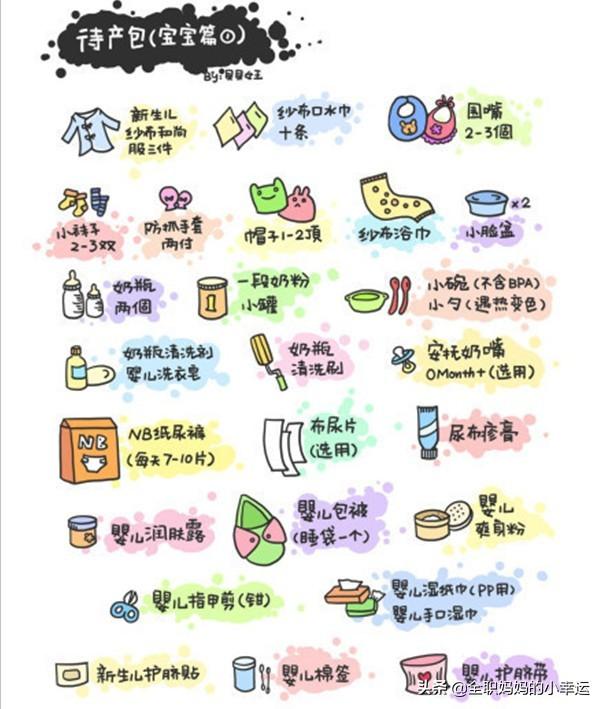 待产包(宝宝篇①)
By:贝贝女王
新生儿
纱布和尚
服三件
纱布口水巾
十条
围嘴
2-3個
小袜子
2-3双
防抓手套
两付
帽子1-2頂
纱布浴巾
x2
小脸盆
奶瓶
两個
一段奶粉
小罐
小碗(不含BPA)
小勺(遇热变色)
奶瓶清洗剂
嬰儿洗衣皂
奶瓶
清洗刷
安抚奶嘴
0Month+(选用)
NB
NB纸尿裤
(每天7-10片)
布尿片
(选用)
尿布疹膏
嬰儿润肤露
嬰儿包被
(睡袋一个)
嬰儿
爽身粉
嬰儿指甲剪(钳)
嬰儿湿纸巾(PP用)
嬰儿手口湿巾
新生儿护脐贴
嬰儿棉签
嬰儿护脐带
头条 @全职妈妈的小幸运